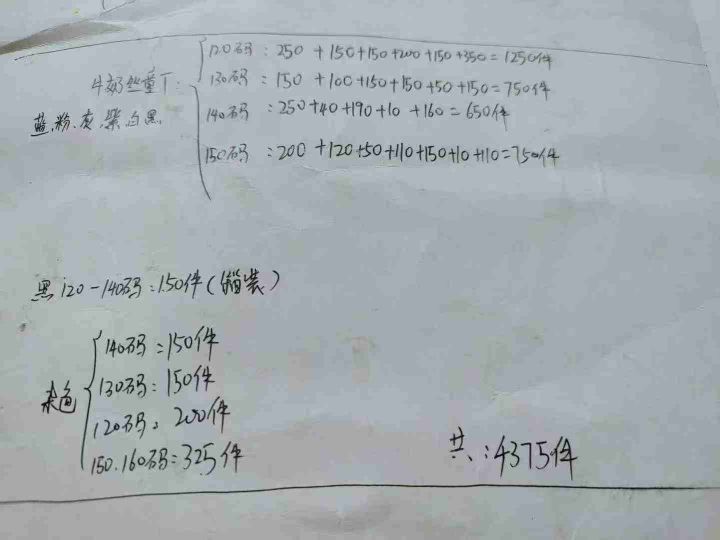 120码：250 +150+150+200+150+350=1250件
牛奶丝童T：130码：150 +100+150+150+50+150=750件
蓝.粉.灰.紫.白.黑. 140码：250+40+190+10 +160=650件
150码：200 +120+50+110+150+10+110=750件
黑120-140码：150件(箱装)
140码：150件
杂色 130码：150件
120码：200件
150.160码：325件
共：4375件